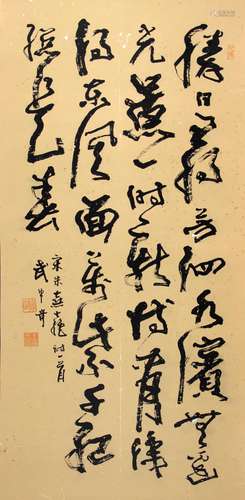 勝日尋芳泗水濱無邊
光景一時新等閒識
得東風面萬紫千紅
總是春
宋朱熹七絕詩一首
武中奇